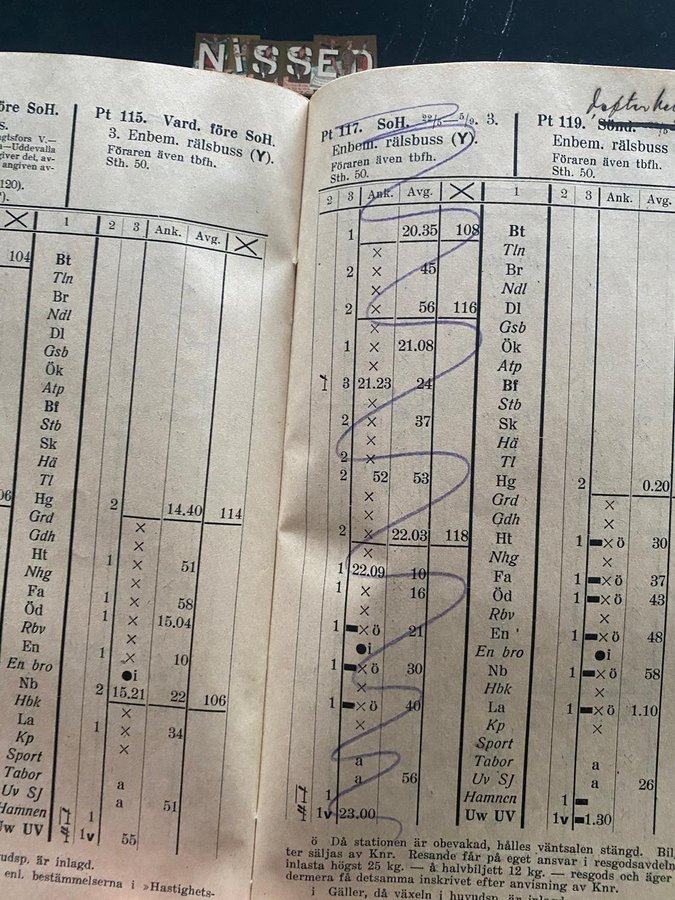 NiSSED
öre SoH.
s.
agtsfors V.—
a—Uddevalla
giver det, av-
angiven av-
120).
Pt 115. Vard. före SoH.
3. Enbem. rälsbuss (Y).
Föraren även tbfh.
Sth. 50.
× 1 2 3 Ank. Avg. ×
104 Bt
Tln
Br
Ndl
Dl
Gsb
Ök
Atp
Bf
Stb
Sk
Hä
Tl
06 Hg 2 14.40 114
Grd ×
Gdh ×
Ht 1 × 51
Nhg ×
Fa 1 × 58
Öd 1 × 15.04
Rbv ×
En 1 × 10
En bro ●i
Nb 2 15.21 22 106
Hbk ×
La 1 × 34
Kp ×
Sport
Tabor a
Uv SJ a 51
Hamnen 1
Uw UV 1v 55
udsp. är inlagd.
enl. bestämmelserna i »Hastighets-
Pt 117. SoH. 22/5—5/9. 3.
Enbem. rälsbuss (Y).
Föraren även tbfh.
Sth. 50.
Pt 119. Sönd.
Enbem. rälsbuss
Föraren även tbfh.
Sth. 50.
2 3 Ank. Avg. × 1 2 3 Ank. Avg.
1 20.35 108 Bt
× Tln
2 × 45 Br
× Ndl
2 × 56 116 Dl
× Gsb
1 × 21.08 Ök
× Atp
3 21.23 24 Bf
× Stb
2 × 37 Sk
× Hä
2 × Tl
2 52 53 Hg 2 0.20
× Grd ×
× Gdh ×
2 × 22.03 118 Ht 1 ▬×ö 30
× Nhg ×
1 22.09 10 Fa 1 ▬×ö 37
× 16 Öd 1 ▬×ö 43
× Rbv ×
1 ▬×ö 21 En 1 ▬×ö 48
●i En bro ●i
1 ▬×ö 30 Nb 1 ▬×ö 58
× Hbk ×
1 ▬×ö 40 La 1 ▬×ö 1.10
× Kp ×
Sport
a Tabor a
a 56 Uv SJ a 26
1 Hamnen 1 ▬
1v 23.00 Uw UV 1v ▬1.30
ö Då stationen är obevakad, hålles väntsalen stängd. Bil
ter säljas av Knr. Resande får på eget ansvar i resgodsavdeln
inlasta högst 25 kg. — å halvbiljett 12 kg. — resgods och äger
dermera få detsamma inskrivet efter anvisning av Knr.
i Gäller, då växeln i huvudsp. är inlagd.